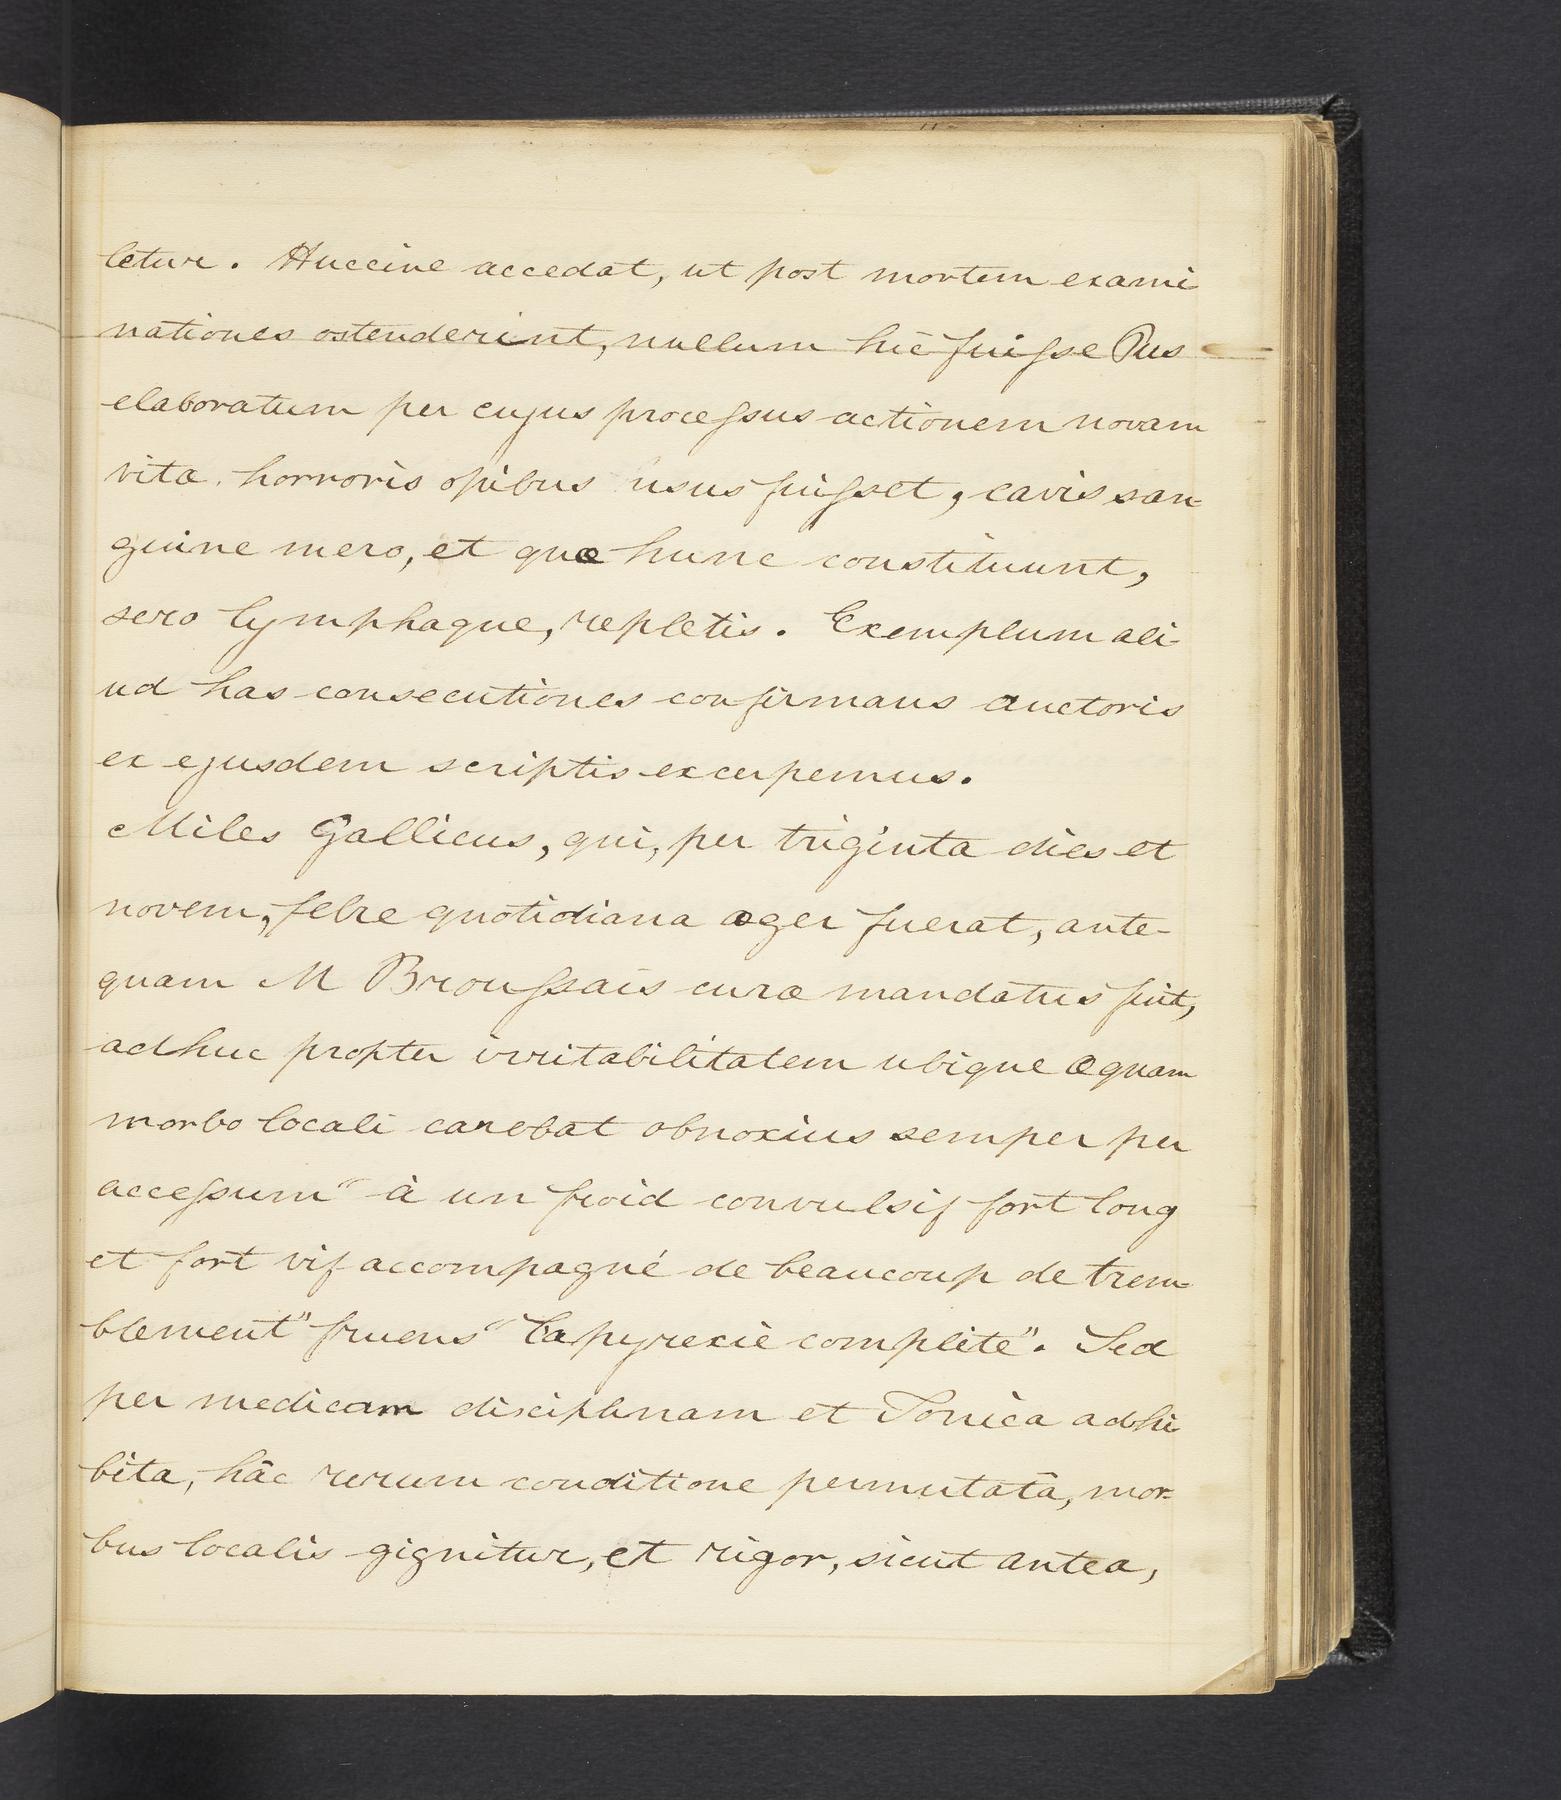 letur. Huccine accedat, ut post mortem exami
nationes ostenderint, nullum hic fuisse Pus
elaboratum per cujus processus actionem novam
vitæ horroris opibus usus fuisset, cavis san-
guine mero, et quæ hunc constituunt,
sero lymphaque, repletis. Exemplum ali-
ud has consecutiones confirmans auctoris
ex ejusdem scriptis excerpemus.
Miles Gallicus, qui, per triginta dies et
novem, febre quotidiana æger fuerat, ante-
quam M Broussais curæ mandatus fuit,
adhuc propter irritabilitatem ubique æquam
morbo locali carebat obnoxius semper per
accessum "à un froid convulsif fort long
et fort vif accompagné de beaucoup de trem-
blement" fruens "l'apyrexie complète". Sed
per medicam disciplinam et Tonica adhi-
bita, hâc rerum conditione permutatâ, mor-
bus localis gignitur, et rigor, sicut antea,